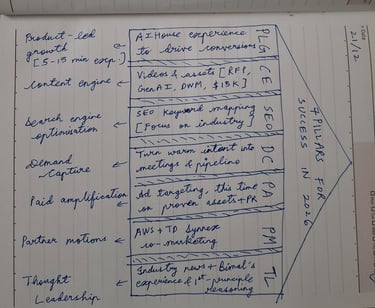 21/12
7 PILLARS FOR
SUCCESS IN 2026
Product-led
growth
[5-15 min exp.]
AI House experience
to drive conversions
PLG
Content engine
Videos & assets [RFI,
GenAI, DWM, $15K]
CE
Search engine
optimisation
SEO keyword mapping
[Focus on industry]
SEO
Demand
Capture
Turn warm intent into
meetings & pipeline
DC
Paid amplification
Ad targeting, this time
on proven assets + PR
PA
Partner motions
AWS + TD Synnex
co-marketing
PM
Thought
Leadership
Industry news + Bimal's
experience of 1st-principle
reasoning
TL